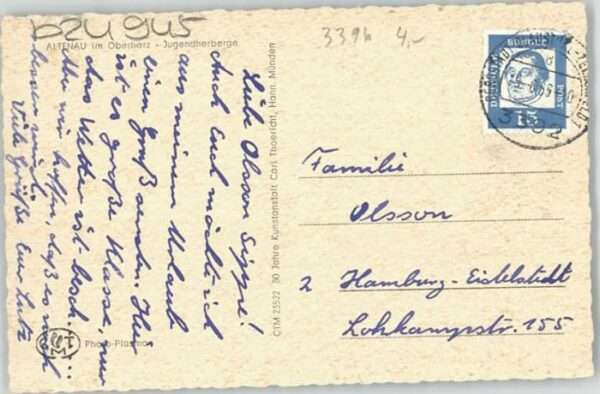 bzugus
ALTENAU im Oberharz - Jugendherberge
3396 4,-
Liebe Olsson Sippe!
Auch Euch möchte ich
aus meinem Urlaub
einen Gruß senden. Hier
ist es große Klasse, nur
das Wetter ist besch...
Aber wir hoffen, daß es noch
besser wird.
Viele Grüße Euer Lutz
Photo-Plasmon
CTM 25522 30 Jahre Kunstanstalt Carl Thoericht, Hann. Münden
DEUTSCHE BUNDESPOST
15
Familie
Olsson
2 Hamburg-Eidelstedt
Lohkampstr. 155